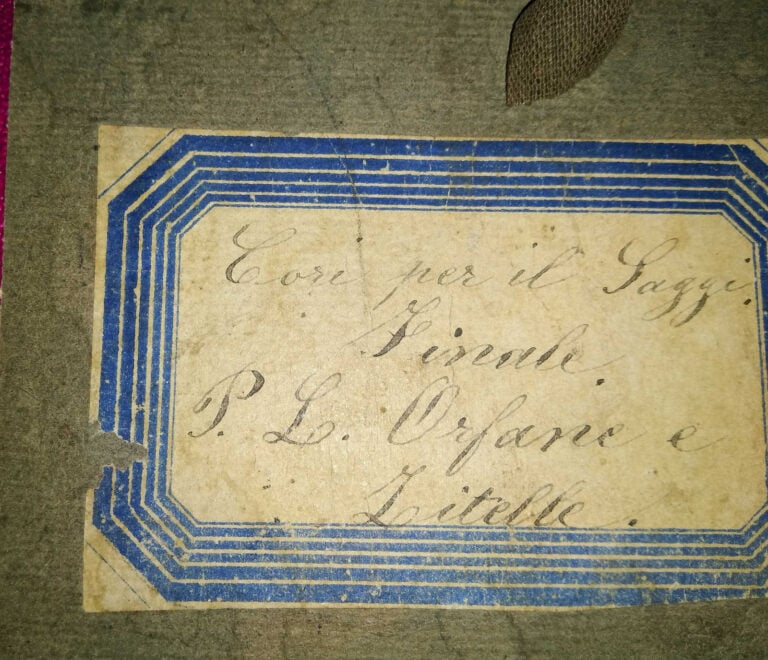 Cori per il Saggi.
Finale.
P. L. Orfane e
Zitelle.